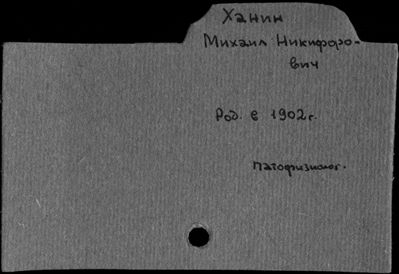 Ханин
Михаил Никифоро-
вич
Род. в 1902г.
патофизиолог.